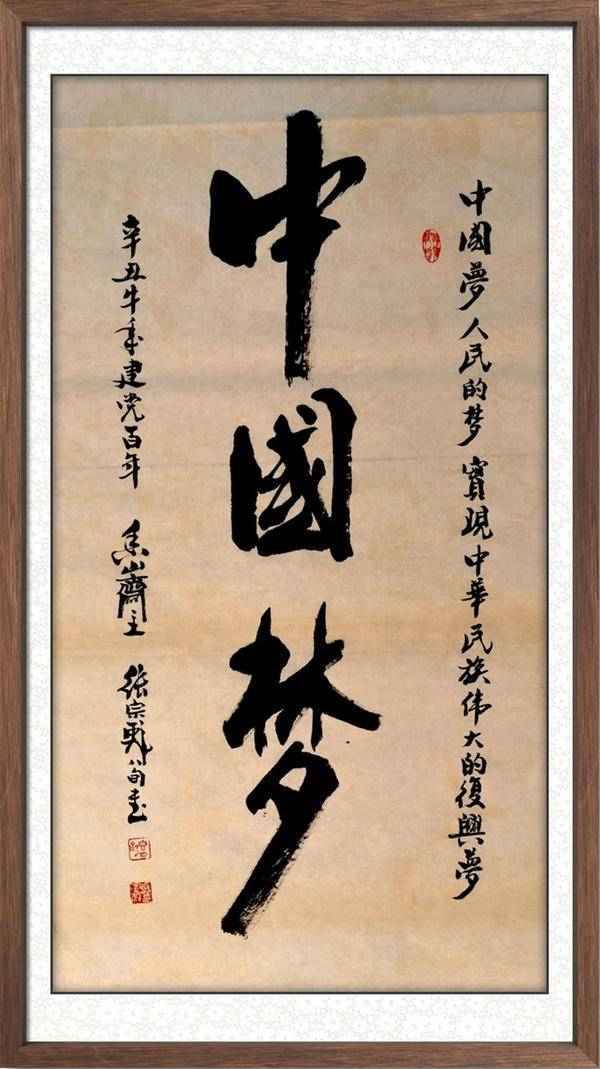 中国夢人民的梦 實現中華民族伟大的復興夢
中國梦
辛丑牛年建党百年 山齋主 張宗 八旬书